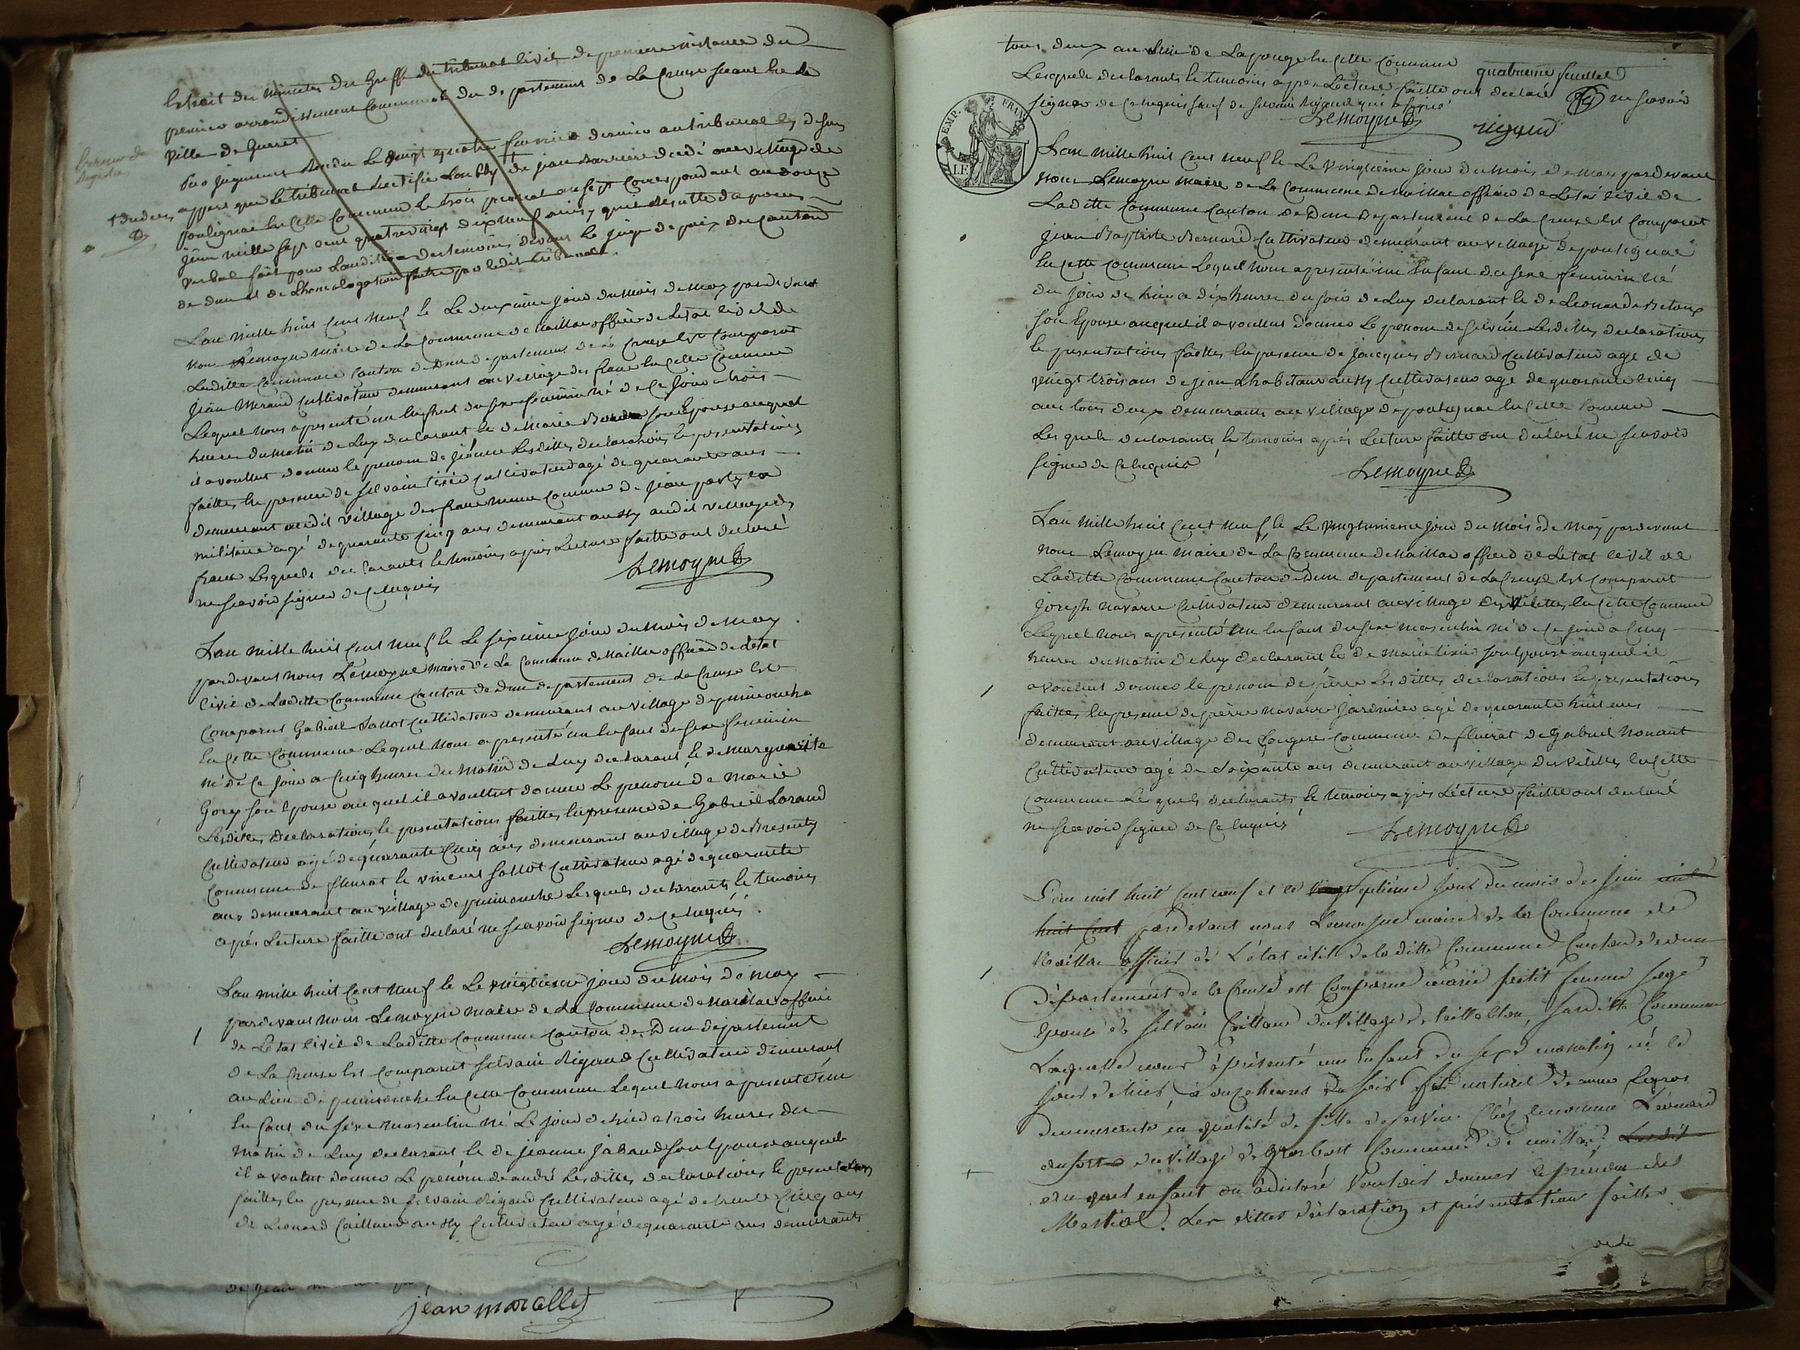 Extrait des minutes du Greffe du tribunal civil de premiere instance du
premier arrondissement Communal du departement de La Creuse seant en la
ville de Gueret
Par jugement Rendu le vingt quatre fevrier dernier au tribunal
appert que le tribunal Rectifie de jean Barriere decedé au village de
poulignac en Cette Commune le trois an sept Correspondant au douze
juin mille sept cent quatrevingt dix neuf ainsy qu'il Resulte du proces
verbal fait pour L'audition des temoins devant le juge de paix du Canton
de dun et de L'homologation faitte par ledit tribunal.
L'an mille huit Cent neuf & Le deuxieme jour du mois de may pardevant
nous Lemoyne maire de La Commune de Naillac officier de L'etat Civil de
Laditte Commune Canton de Dun departement de La Creuse Est Comparut
jean Meraud Cultivateur demeurant au village des frane en Cette Commune
Lequel nous a presenté un Enfant du sexe feminin né de Ce jour a trois
heures du matin de Luy declarant & de Marie son Epouse auquel
il a voullut donner le prenom de jeanne Lesdittes declarations & presentations
faittes En presence de silvain Cultivateur agé de quarante ans
demeurant audit village des frane meme Commune de jean
militaire agé de quarante Cinq ans demeurant aussy audit village des
frane Lesquels declarants & temoins apres Lecture faitte ont declaré
ne scavoir signer de Ce enquis
Lemoyne
L'an mille huit Cent neuf & Le sixieme jour du mois de may
pardevant nous Lemoyne maire de La Commune de Naillac officier de L'etat
Civil de Laditte Commune Canton de Dun departement de La Creuse Est
Comparut Gabriel Sallot Cultivateur demeurant au village de puimouche
En Cette Commune Lequel nous a presenté un Enfant du sexe feminin
né de Ce jour a Cinq heures du matin de Luy declarant & de marguerite
Gorey son Epouse auquel il a voullut donner Le prenom de Marie
Lesdites declarations & presentations faittes En presence de Gabriel Lorand
Cultivateur agé de quarante Cinq ans demeurant au village de Bresenty
Commune de fleurat & vincent Sallot Cultivateur agé de quarante
ans demeurant au village de puimouche Lesquels declarants & temoins
apres Lecture faitte ont declaré ne scavoir signer de Ce enquis.
Lemoyne
L'an mille huit Cent neuf & Le vingtieme jour du mois de may
pardevant nous Lemoyne maire de La Commune de Naillac officier
de L'etat Civil de Laditte Commune Canton de Dun departement
de La Creuse Est Comparut silvain Rigaud Cultivateur demeurant
au Lieu de puimouche En Cette Commune Lequel nous a presenté un
Enfant du sexe masculin né Le jour de hier a trois heures du
matin de Luy declarant & de jeanne jabaud son Epouse auquel
il a voulut donner Le prenom de andré Lesdittes declarations & presentations
faittes En presence de silvain Rigaud Cultivateur agé de trente Cinq ans
de Leonard Caillaud aussy Cultivateur agé de quarante ans demeurants
jean marallet
tous deux au Lieu de Lapouge En Cette Commune
quatrieme feuillet
Lesquels declarants & temoins apres Lecture faitte ont declaré ne scavoir
signer de Ce enquis sauf de silvain Rigaud qui a signé
Lemoyne
rigaud
EMP. FRAN.
L'an mille huit Cent neuf & Le vingtieme jour du mois de may pardevant
nous Lemoyne maire de La Commune de Naillac officier de L'etat Civil de
Laditte Commune Canton de Dun departement de La Creuse Est Comparut
jean Baptiste Bernard Cultivateur demeurant au village de poulignac
En Cette Commune Lequel nous a presenté un Enfant du sexe feminin né
du jour de hier a dix heures du soir de Luy declarant & de Leonarde
son Epouse auquel il a voullut donner Le prenom de silvine Lesdittes declarations
& presentations faittes En presence de jacques Bernard Cultivateur agé de
vingt trois ans de jean L'habitant aussy Cultivateur agé de quarante Cinq
ans tous deux demeurants au village de poulignac En Cette Commune
Lesquels declarants & temoins apres Lecture faitte ont declaré ne scavoir
signer de Ce enquis
Lemoyne
L'an mille huit Cent neuf & Le vingtunieme jour du mois de may pardevant
nous Lemoyne maire de La Commune de Naillac officier de L'etat Civil de
Laditte Commune Canton de Dun departement de La Creuse Est Comparut
joseph Navarre Cultivateur demeurant au village des Vilettes En Cette Commune
Lequel nous a presenté un Enfant du sexe masculin né de Ce jour a Cinq
heures du matin de Luy declarant & de marie son Epouse auquel il
a voullut donner le prenom de pierre Lesdittes declarations & presentations
faittes En presence de pierre Navarre jardinier agé de quarante huit ans
demeurant au village des Commune de fleurat de Gabriel Nonant
Cultivateur agé de soixante ans demeurant au village des Vilettes En Cette
Commune Lesquels declarants & temoins apres Lecture faitte ont declaré
ne scavoir signer de Ce enquis
Lemoyne
L'an mil huit Cent neuf et le septième jour du mois de juin
huit Cent pardevant nous Lemoyne maire de la Commune de
Naillac officier de L'état civil de laditte Commune Canton de dun
département de la Creuse est Comparue marie petit femme sage
Epouse de silvain du village de sarditte Commune
Laquelle nous a présenté un Enfant du sexe masculin né le
jour de hier, à onze heures du soir fils naturel de anne Legros
demeurante en qualité de fille de service Chez Le nommé Léonard
du village de Commune de naillac, Ledit
auquel enfant on a déclaré vouloir donner le prénom de
Martial. Les dittes déclaration et présentation faittes
de